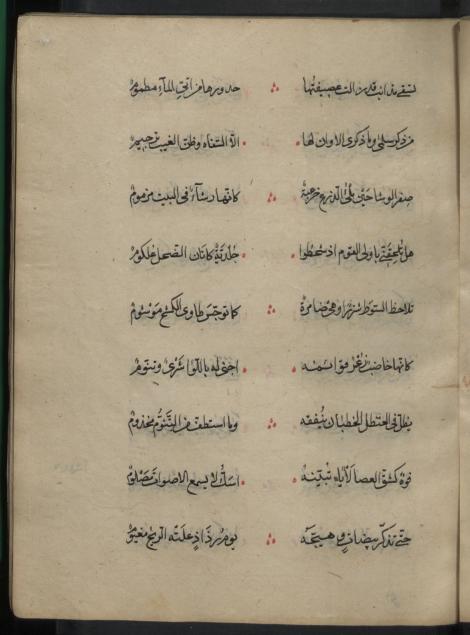 تسقي مذانب قد زالت عصيفتها حدورها من اتيّ الماء مطمومُ
من ذكر سلمى وما ذكري الاوان لها الاّ السّفاه وظنّ الغيب ترجيمُ
صفر الوشاحين ملئ الدّرع خرعبة كانّها رشاءٌ في البيت مزمومُ
هل تلحقنّي باولى القوم اذ شحطوا جلذيّةٌ كاتان الضّحل علكومُ
تلاحظ السّوط شزرا وهي ضامرة كما توجّس طاوي الكشح موشومُ
كانّها خاضبٌ زعرٌ قوائمه اجنى له باللّوا شريٌ وتنّومُ
يظلّ في الحنظل الخطبان ينقفه وما استطفّ من التّنّوم مخذومُ
فوه كشقّ العصا لأيا تبيّنه اسكّ لا يسمع الاصوات مصلومُ
حتّى تذكّر بيضات وهيّجه يومُ رذاذٍ علته الرّيح مغيومُ